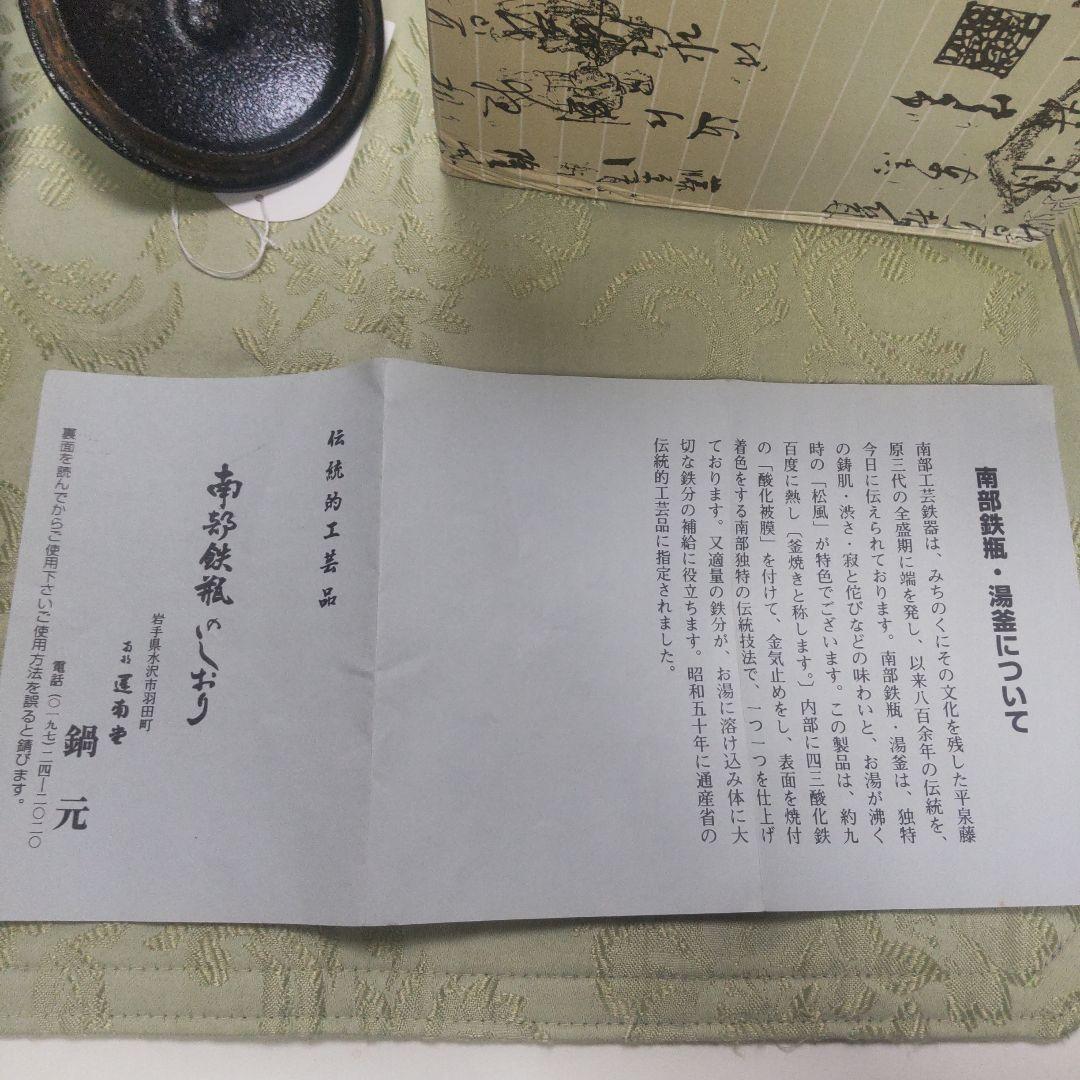 南部鉄瓶・湯釜について
南部工芸鉄器は、みちのくにその文化を残した平泉藤
原三代の全盛期に端を発し、以来八百余年の伝統を、
今日に伝えられております。南部鉄瓶、湯釜は、独特
の鋳肌・渋さ・寂と侘びなどの味わいと、お湯が沸く
時の「松風」が特色でございます。この製品は、約九
百度に熱し〔釜焼きと称します。〕内部に四三酸化鉄
の「酸化被膜」を付けて、金気止めをし、表面を焼付
着色をする南部独特の伝統技法で、一つ一つを仕上げ
ております。又適量の鉄分が、お湯に溶け込み体に大
切な鉄分の補給に役立ちます。昭和五十年に通産省の
伝統的工芸品に指定されました。
伝統的工芸品
南部鉄瓶のしおり
岩手県水沢市羽田町
運南堂
鍋元
電話(〇一九七)二四―二〇二〇
裏面を読んでからご使用下さいご使用方法を誤ると錆びます。